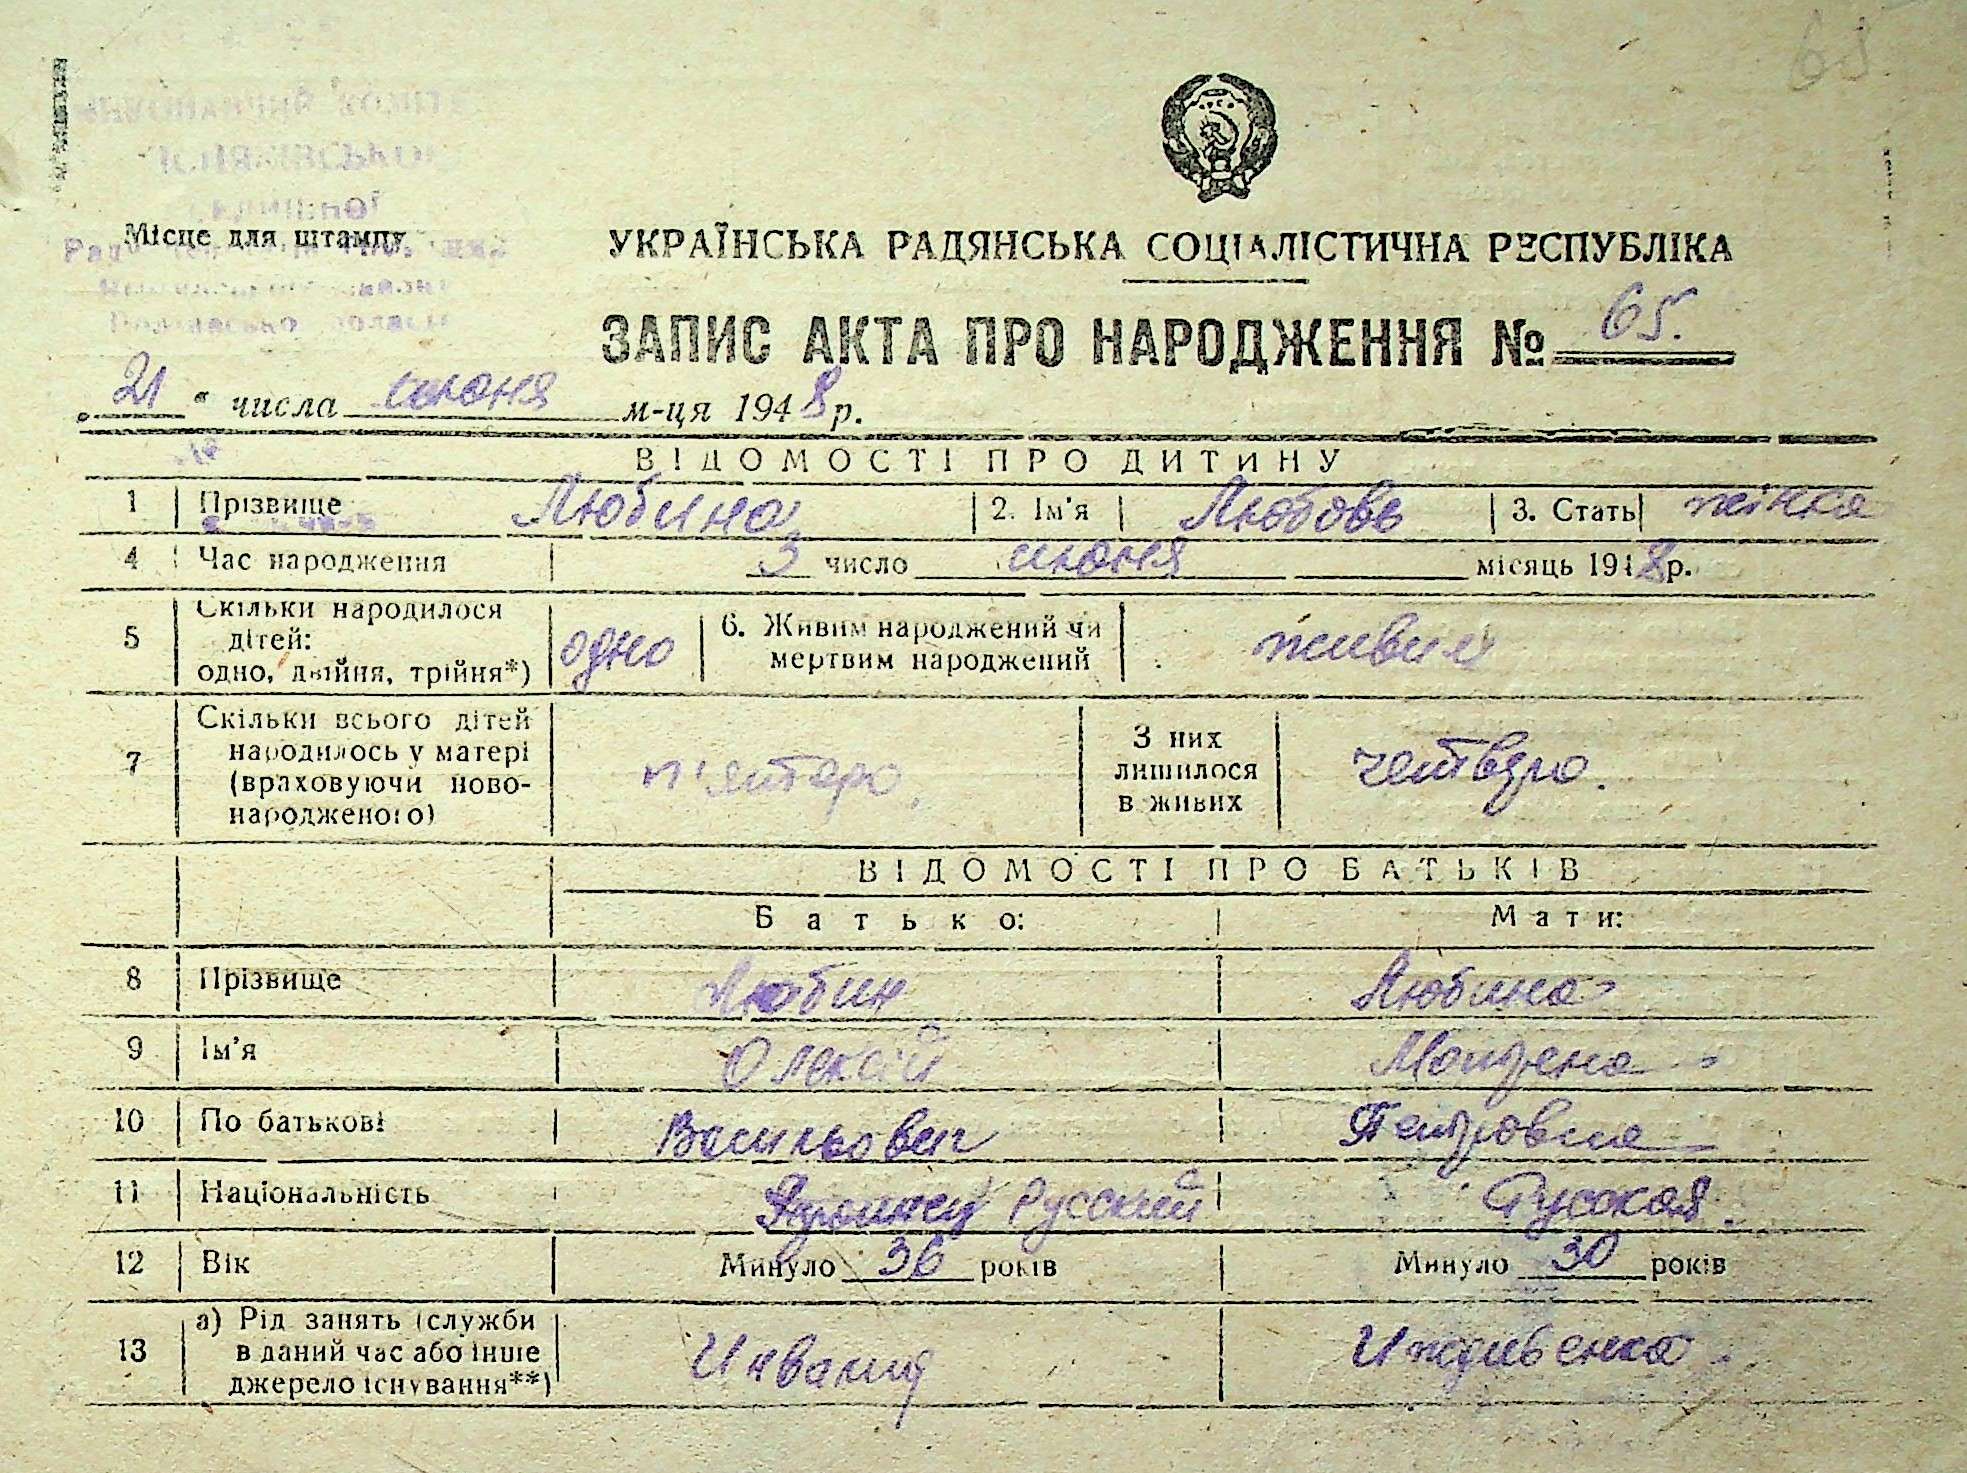 65
Місце для штампу
УКРАЇНСЬКА РАДЯНСЬКА СОЦІАЛІСТИЧНА РЕСПУБЛІКА
ЗАПИС АКТА ПРО НАРОДЖЕННЯ № 65.
„21“ числа июня м-ця 1948 р.
ВІДОМОСТІ ПРО ДИТИНУ
1 Прізвище Любина 2. Ім'я Любовь 3. Стать жінка
4 Час народження 3 число июня місяць 1948 р.
5 Скільки народилося дітей: одно, двійня, трійня*) одно 6. Живим народжений чи мертвим народжений живим
7 Скільки всього дітей народилось у матері (враховуючи новонародженого) п'ятеро. З них лишилося в живих четверо.
ВІДОМОСТІ ПРО БАТЬКІВ
Батько: Мати:
8 Прізвище Любин Любина
9 Ім'я Олексій Мотрена
10 По батькові Васильович Петровна
11 Національність Русский Русская.
12 Вік Минуло 36 років Минуло 30 років
13 а) Рід занять (служби в даний час або інше джерело існування**) Инвалид Иждивенка.